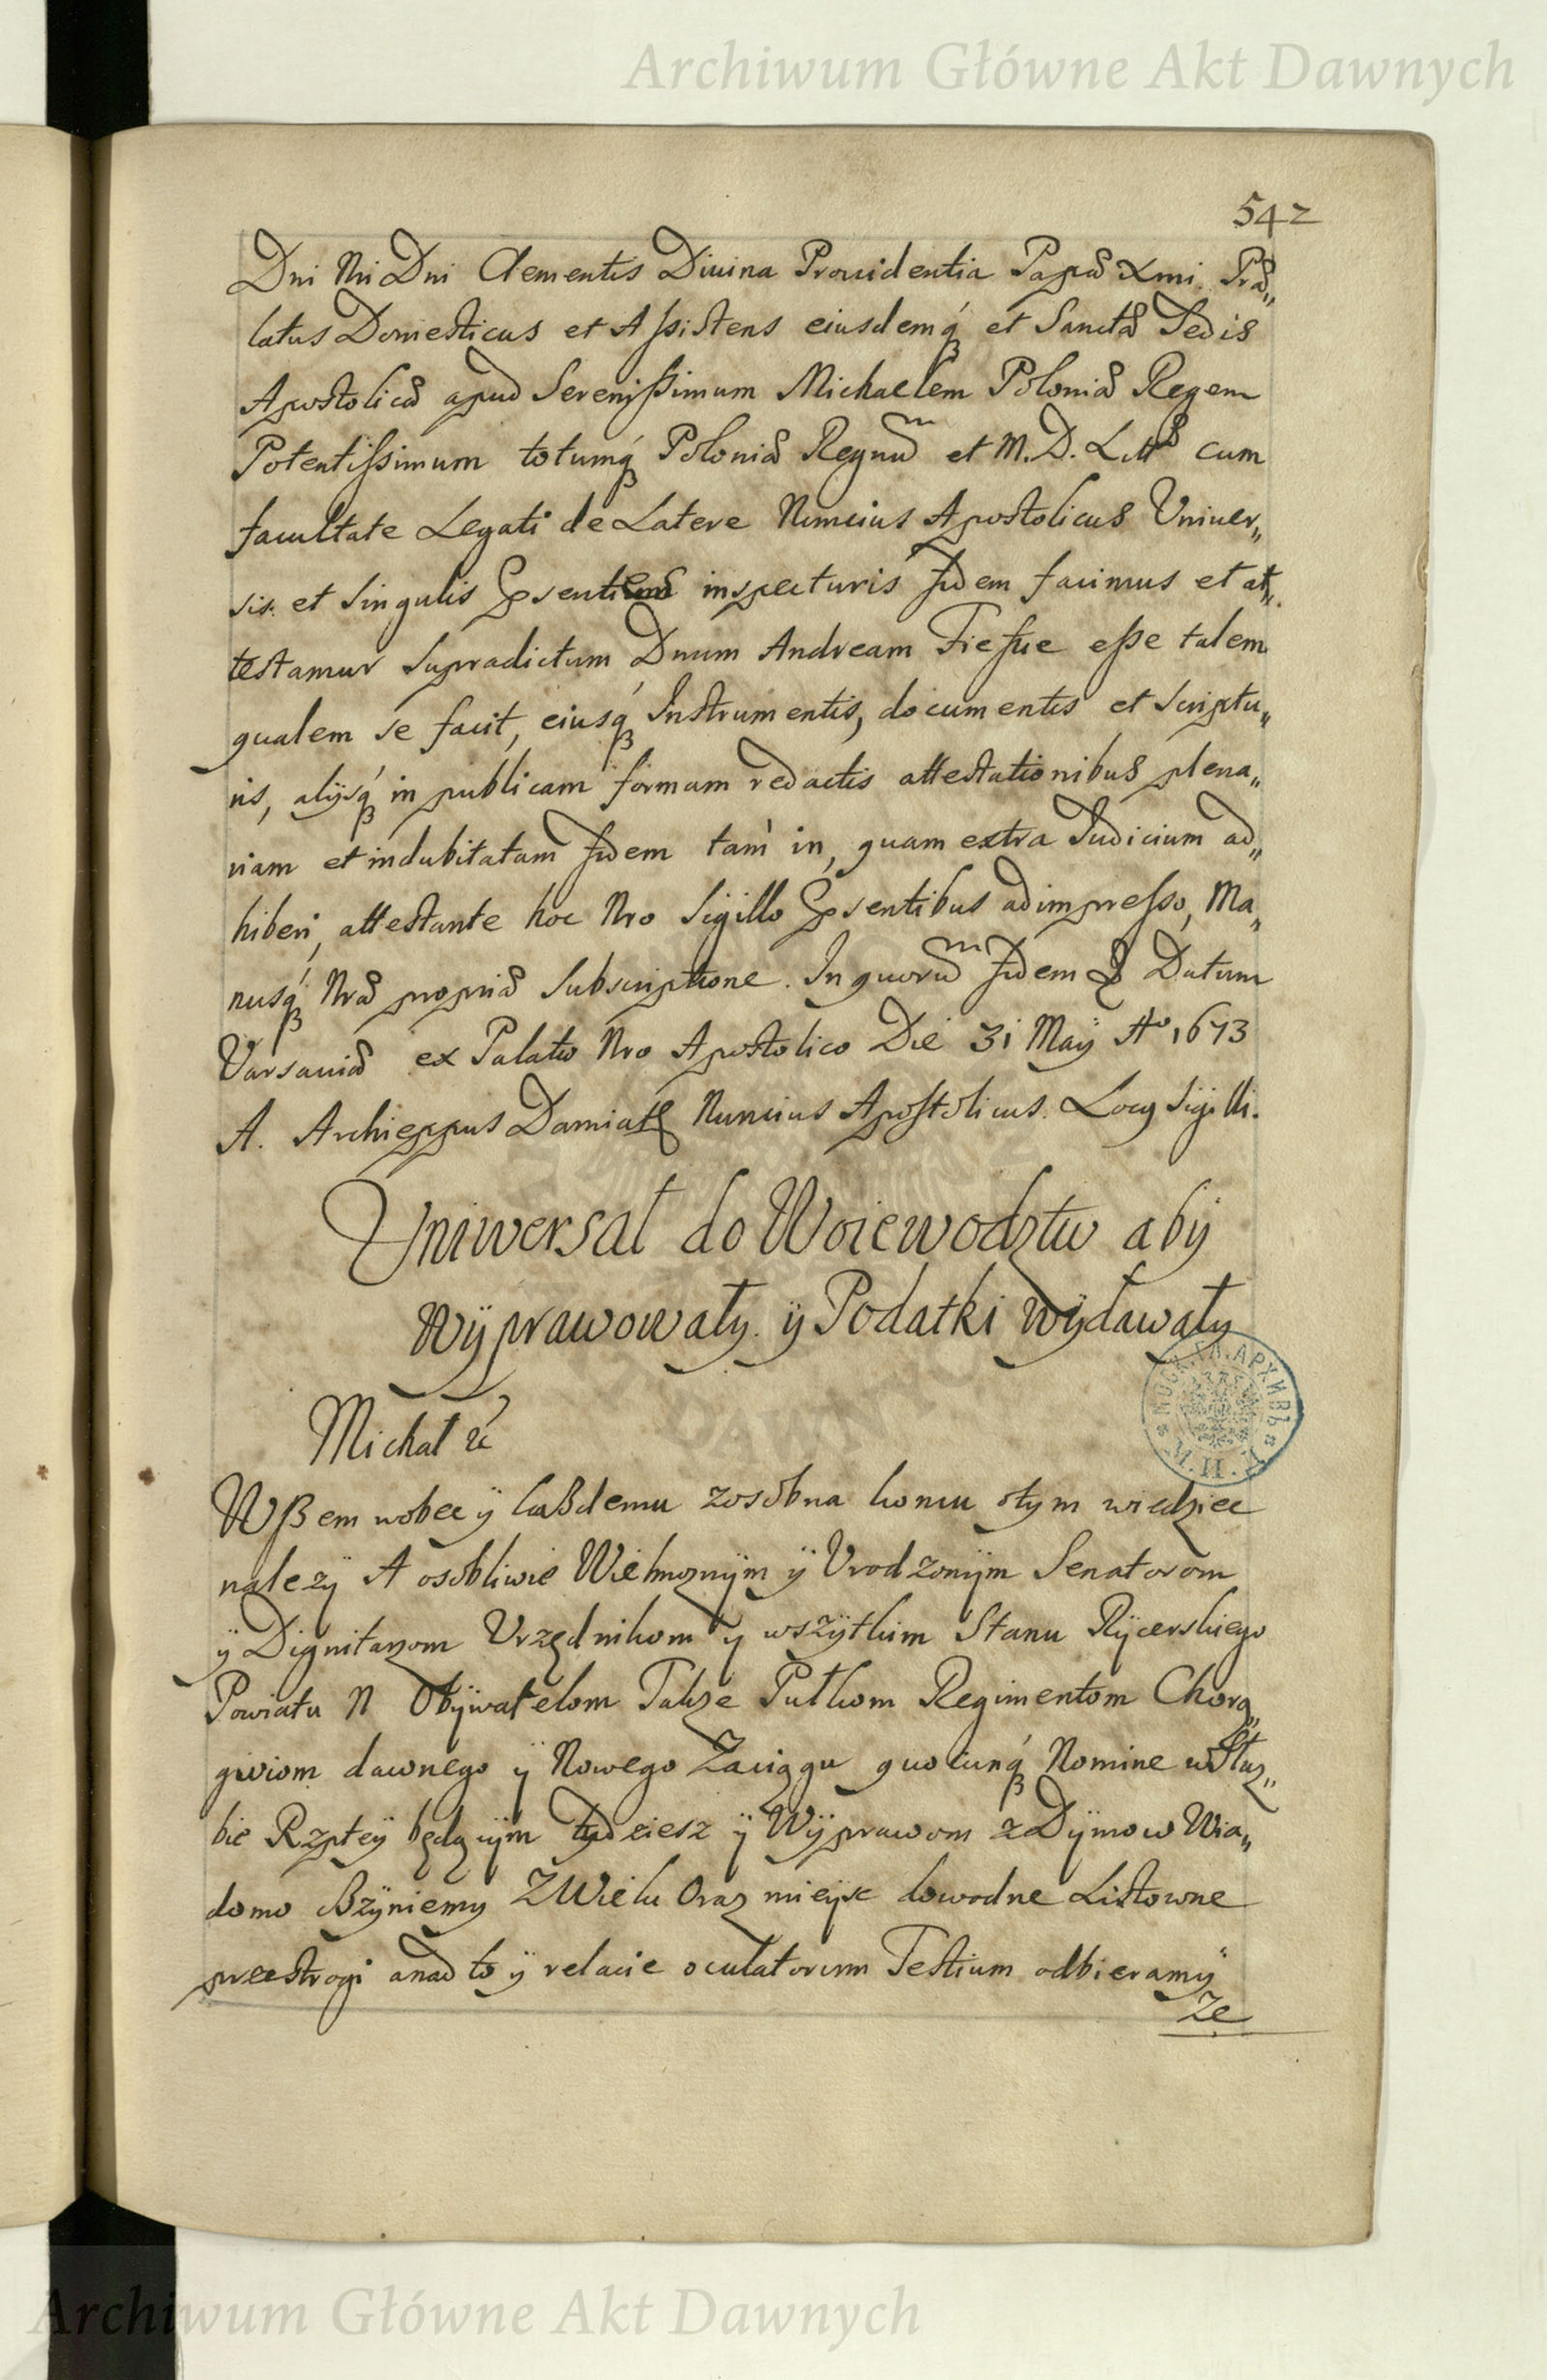 Archiwum Główne Akt Dawnych
542
Dni Nri Dni Clementis Diuina Prouidentia Papæ Xmi. Præ„
latus Domesticus et Assistens eiusdemq́ꝫ et Sanctæ Sedis
Apostolicæ apud Serenissimum Michaelem Poloniæ Regem
Potentissimum totumq́ꝫ Poloniæ Regnu͠ et M.D. Littæ cum
facultate Legati de Latere Nuncius Apostolicus Vniuer„
sis. et Singulis inspecturis fidem facimus et at„
testamur Supradictum Dnum Andream esse talem
qualem se facit, eiusq́ꝫ Instrumentis, documentis et Scriptu„
ris, alijsq́ꝫ in publicam formam redactis attestationibus plena„
riam et indubitatam fidem tam in, quam extra Iudicium ad„
hiberi, attestante hoc Nro Sigillo Pꝛsentibus adimpresso, Ma„
nusq́ꝫ Nræ propriæ Subscriptione. In quoru͠ fidem & Datum
Varsauiæ ex Palatio Nro Apostolico Die 31 Maÿ Aº 1673
A. Archieppus Damiatæ Nuncius Apostolicus. Locꝯ Sigilli.
Uniwersał do Woiewodztw abÿ
Wÿprawowały. ÿ Podatki wÿdawały
МОСК. ГЛ. АРХИВЪ М. И. Д.
Michał &c
Wßem wobec ÿ kaßdemu zosobna komu otym wiedziec
nalezÿ A osobliwie Wielmoznÿm ÿ Vrodzonÿm Senatorom
ÿ Dignitarzom Vrzędnikom y wszÿtkim Stanu Rÿcerskiego
Powiatu N Obÿwatelom Takze Pułkom Regimentom Chorą„
gwiom dawnego ÿ Nowego Zaciągu quocunq́ꝫ Nomine w Słuz„
bie Rzptey będącÿm tudziesz ÿ Wÿprawom z Dÿmow Wia„
domo Czÿniemy Z Wielu Oraz mieÿsc dowodne Listowne
przestrogi anad to ÿ relacie oculatorum Testium odbieramÿ
Ze
Archiwum Główne Akt Dawnych